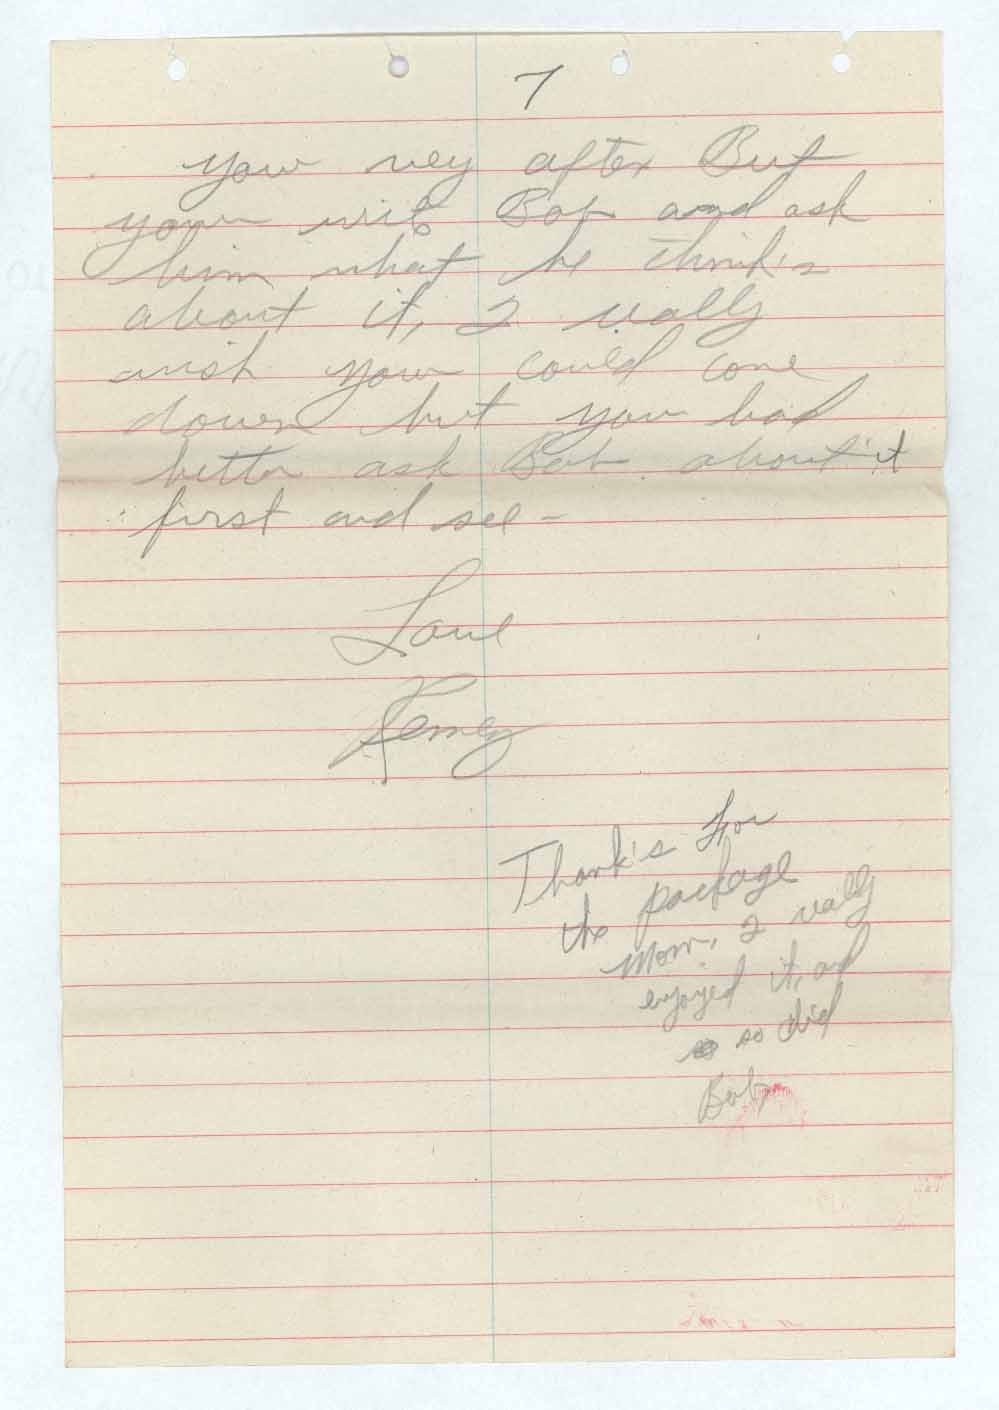 7
your vey after But
your writ Bob and ask
him what he think's
about it, I really
wish your could come
down but your had
better ask Bob about it
first and see -
Love
Thank's For
the package
Mom, I really
enjoyed it, and
so did
Bob